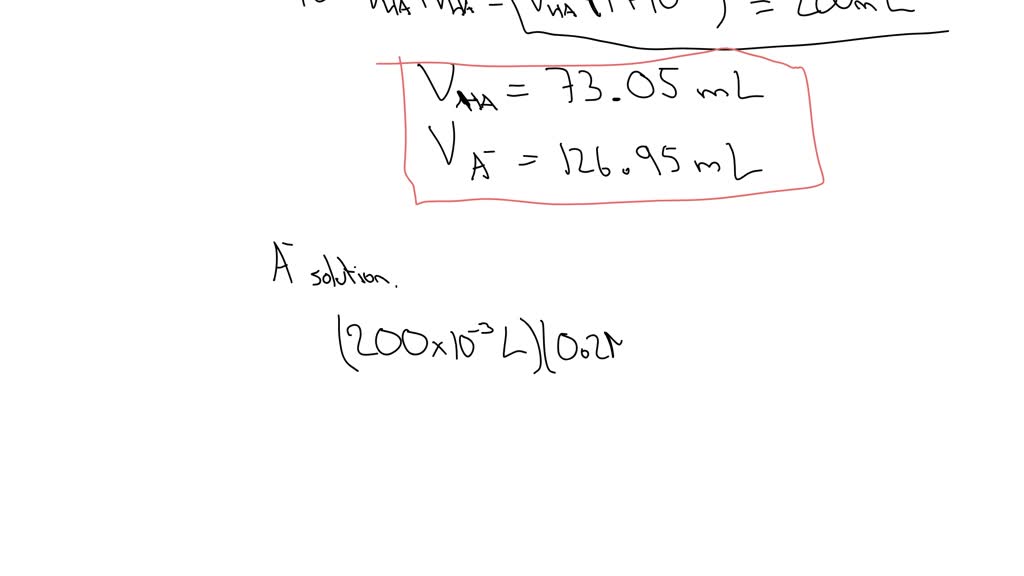 V_HA (1+10 ) = 200mL
V_HA = 73.05 mL
V_A⁻ = 126.95 mL
A⁻ solution.
(200×10⁻³ L)(0.2M